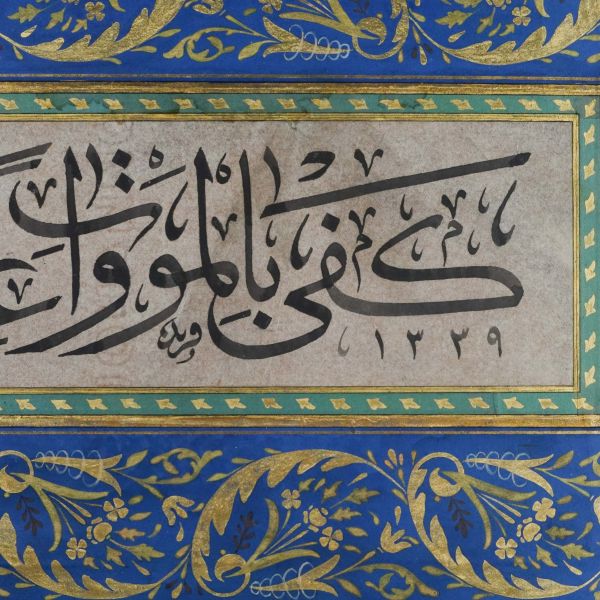 كفى بالموت
١٣٣٩